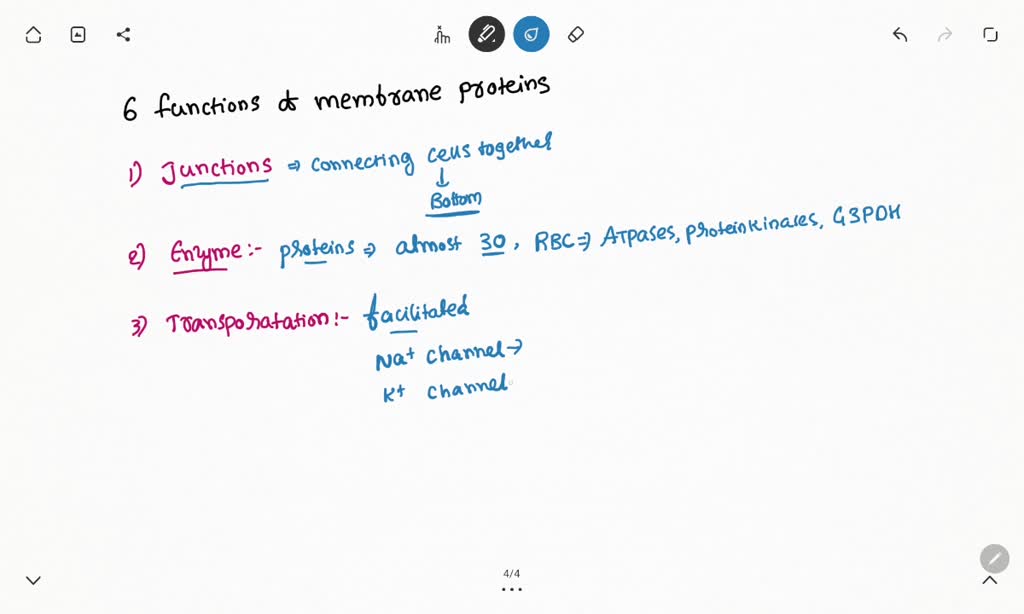 6 functions of membrane proteins
1) Junctions ⇒ connecting cells together
↓
Bottom
2) Enzyme:- proteins ⇒ almost 30, RBC ⇒ ATPases, proteinkinases, G3PDH
3) Transporatation:- facilitated
Na+ channel →
K+ channel
4/4